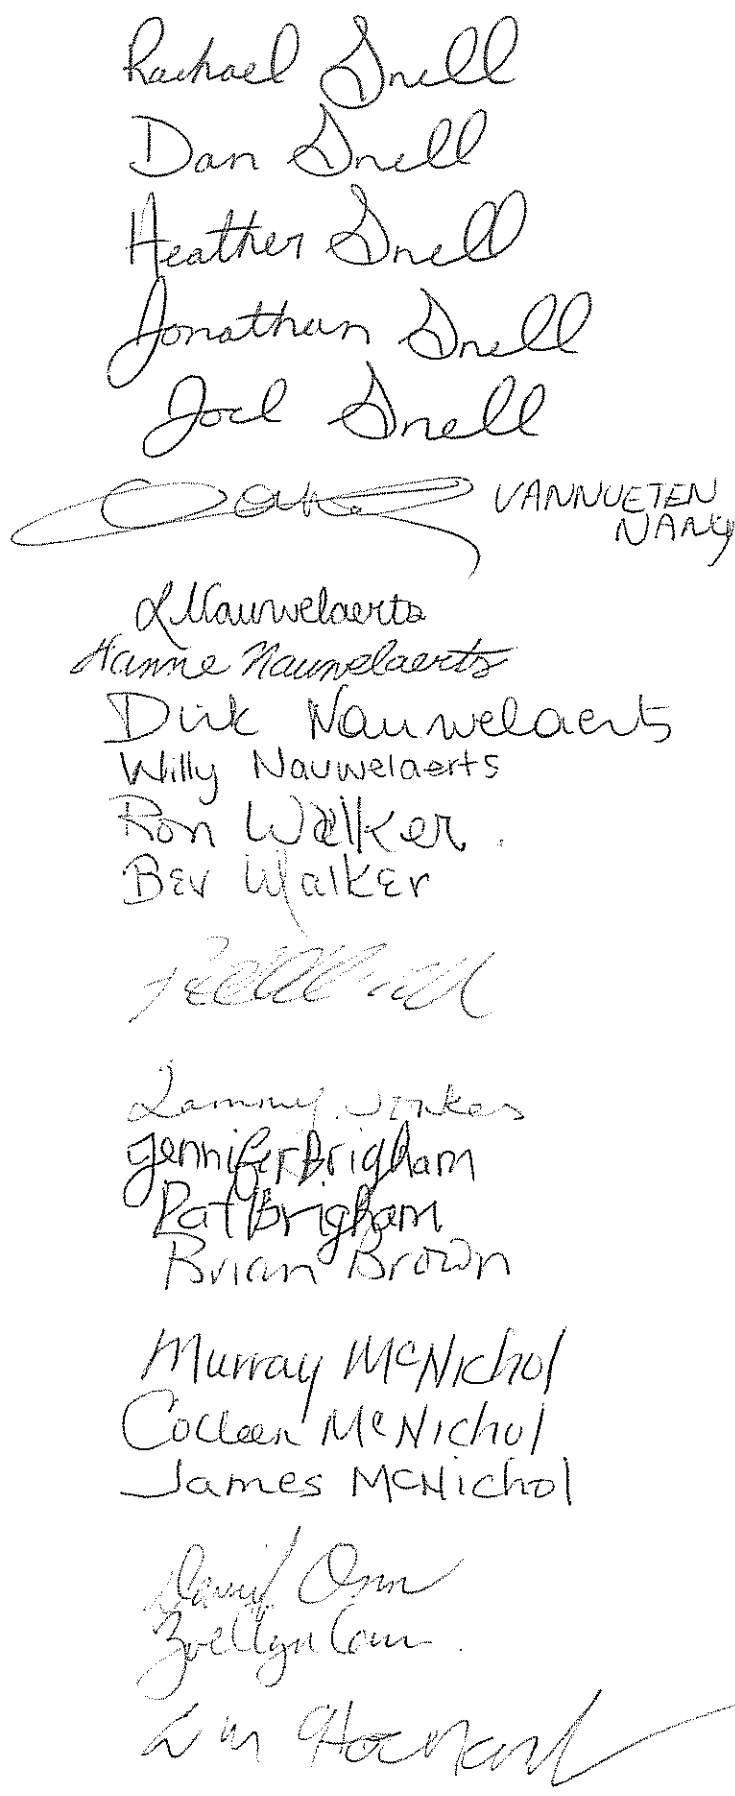 Rachael Snell
Dan Snell
Heather Snell
Jonathan Snell
Joel Snell
VANNUETEN
NANCY
L Nauwelaerts
Hanne Nauwelaerts
Dirk Nauwelaerts
Willy Nauwelaerts
Ron Walker.
Bev Walker
Tammy Jonkes
Jennifer Brigham
Pat Brigham
Brian Brown
Murray McNichol
Colleen McNichol
James McNichol
David
Zoellyn